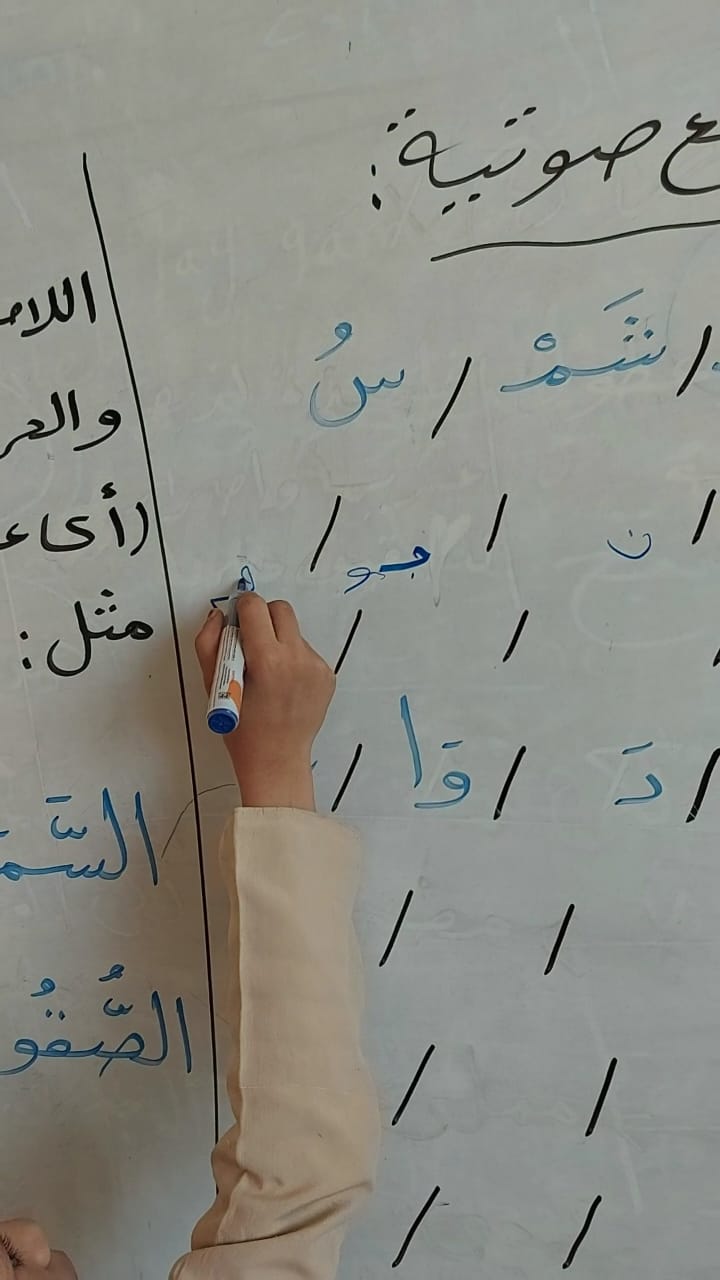 ع صوتية:
/ شَمْ / سُ
/ ن / جو /
/ / /
/ دَ / وَا /
/ /
/ /
/ /
اللا
والعر
(أي كا
مثل:
السَّم
الصُّقُو